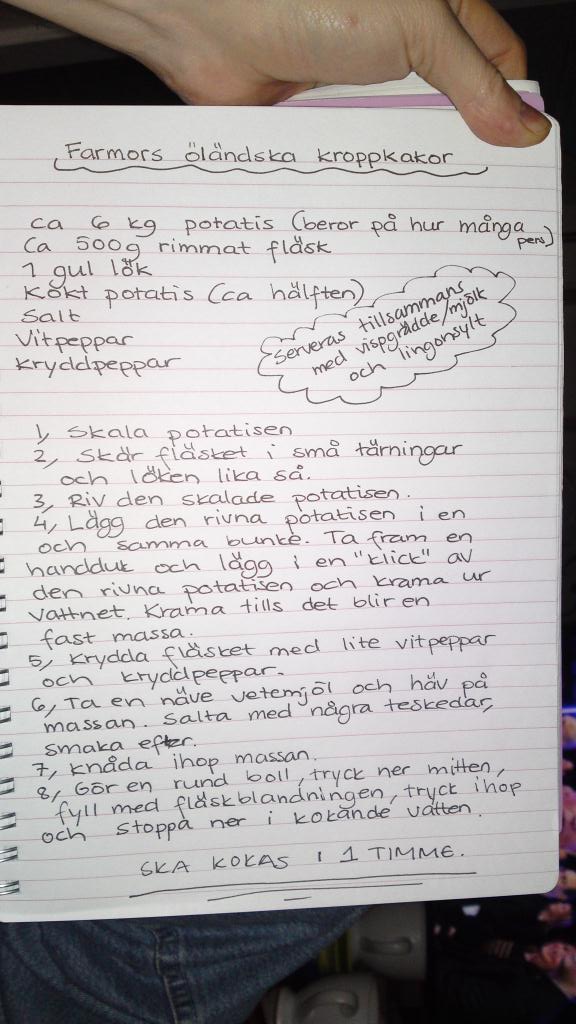 Farmors öländska kroppkakor
ca 6 kg potatis (beror på hur många pers)
Ca 500g rimmat fläsk
1 gul lök
Kokt potatis (ca hälften)
Salt
Vitpeppar
Kryddpeppar
Serveras tillsammans
med vispgrädde/mjölk
och lingonsylt
1, Skala potatisen
2, Skär fläsket i små tärningar
och löken lika så.
3, Riv den skalade potatisen.
4, Lägg den rivna potatisen i en
och samma bunke. Ta fram en
handduk och lägg i en "klick" av
den rivna potatisen och krama ur
vattnet. Krama tills det blir en
fast massa.
5, Krydda fläsket med lite vitpeppar
och kryddpeppar.
6, Ta en näve vetemjöl och häv på
massan. Salta med några teskedar,
smaka efter.
7, Knåda ihop massan.
8, Gör en rund boll, tryck ner mitten,
fyll med fläskblandningen, tryck ihop
och stoppa ner i kokande vatten.
SKA KOKAS I 1 TIMME.